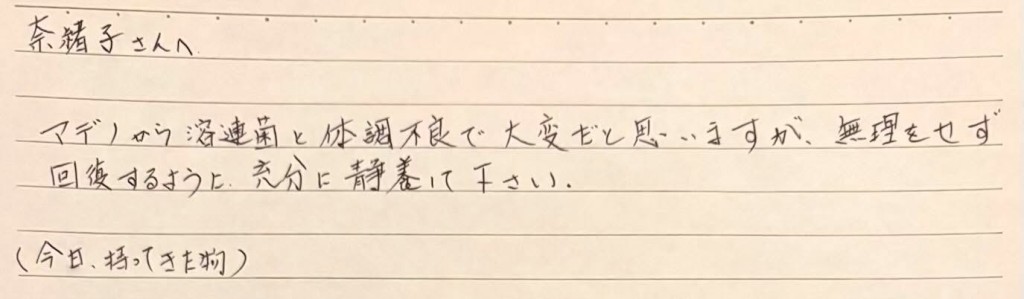 奈緒子さんへ
マデノから溶連菌と体調不良で大変だと思いますが、無理をせず
回復するように、充分に静養して下さい。
(今日、持ってきた物)